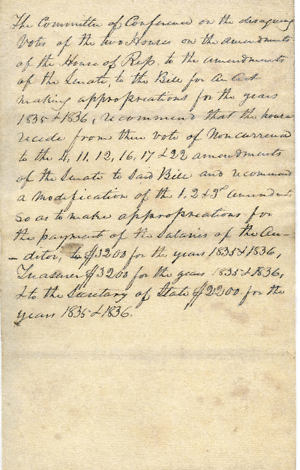 The Committee of Conference on the disagreeing
Votes of the two Houses on the amendments
of the House of Reps. to the amendments
of the Senate, to the Bill for An Act
making appropriations for the years
1835 & 1836, recommend that the house
recede from their vote of Noncurrence
to the 4, 11, 12, 16, 17 & 22 amendments
of the Senate to Said Bill and recommend
a modification of the 1. 2 & 3d amendments
so as to make appropriations for
the payment of the Salaries of the Au-
-ditor, to $3200 for the years 1835 & 1836,
Treasurer $3200 for the years 1835 & 1836,
& to the Secretary of State $2200. for the
years 1835 & 1836.